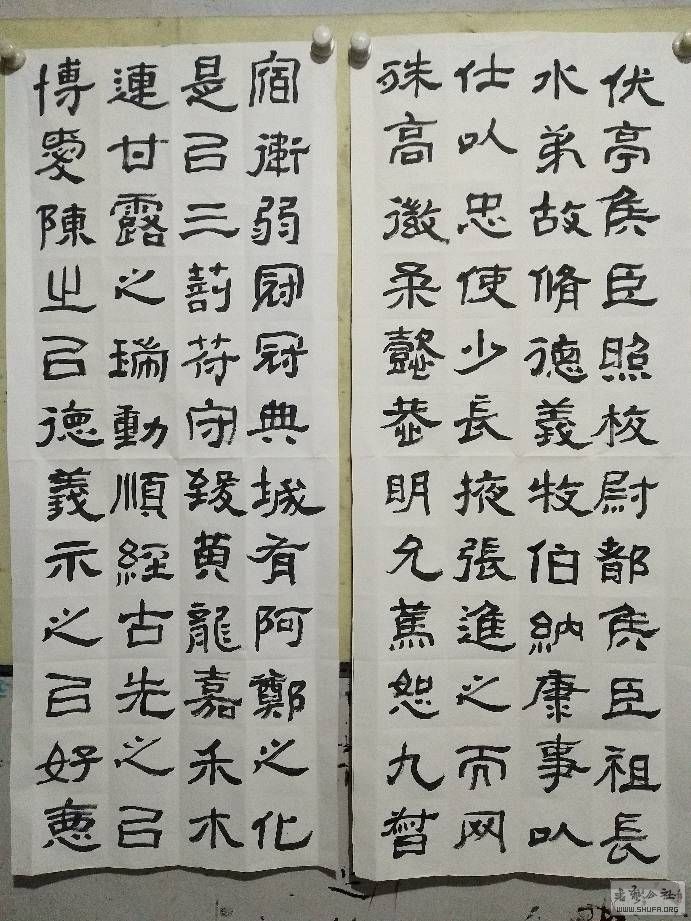 伏亭侯臣照校尉都侯臣祖長
水弟故脩德義牧伯納康事以
仕以忠使少長掖張進之而网
殊高徽柔懿恭明允篤恕九督
宿衛弱冠冠典城有阿鄭之化
是㠯三剖符守致黃龍嘉禾木
連甘露之瑞動順經古先之㠯
博愛陳之㠯德義示之㠯好惡
WWW.SHUFA.ORG